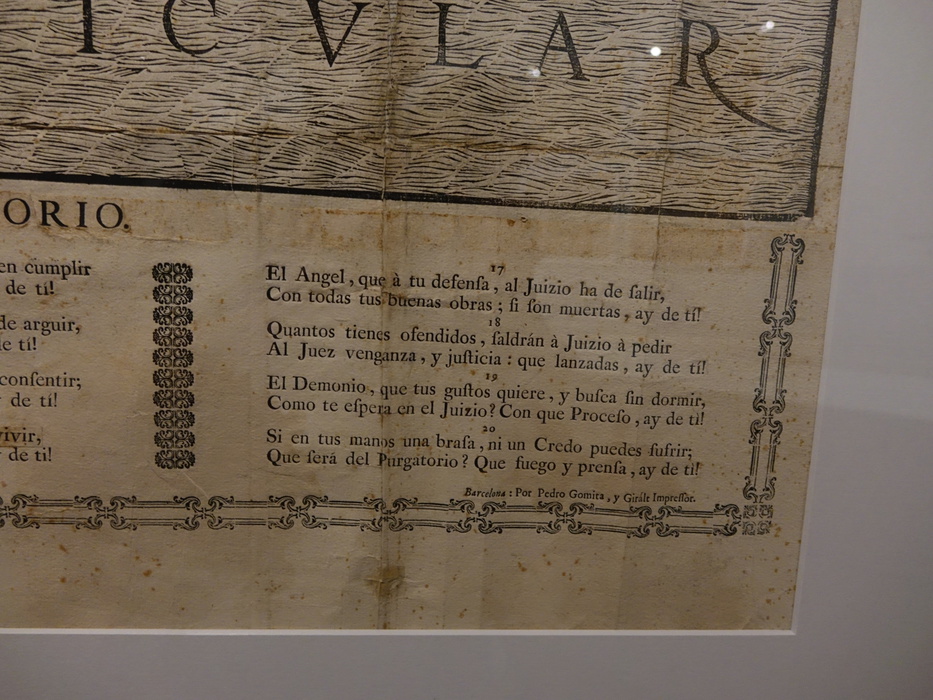 I C V L A R
ORIO.
en cumplir
de tí!
de arguir,
de tí!
consentir;
y de tí!
vivir,
y de ti!
17
El Angel, que à tu defensa, al Juizio ha de salir,
Con todas tus buenas obras; si son muertas, ay de tí!
18
Quantos tienes ofendidos, saldrán à Juizio à pedir
Al Juez venganza, y justicia: que lanzadas, ay de tí!
19
El Demonio, que tus gustos quiere, y busca sin dormir,
Como te espera en el Juizio? Con que Proceso, ay de tì!
20
Si en tus manos una brasa, ni un Credo puedes sufrir;
Que será del Purgatorio? Que fuego y prensa, ay de ti!
Barcelona: Por Pedro Gomita, y Giràlt Impressor.